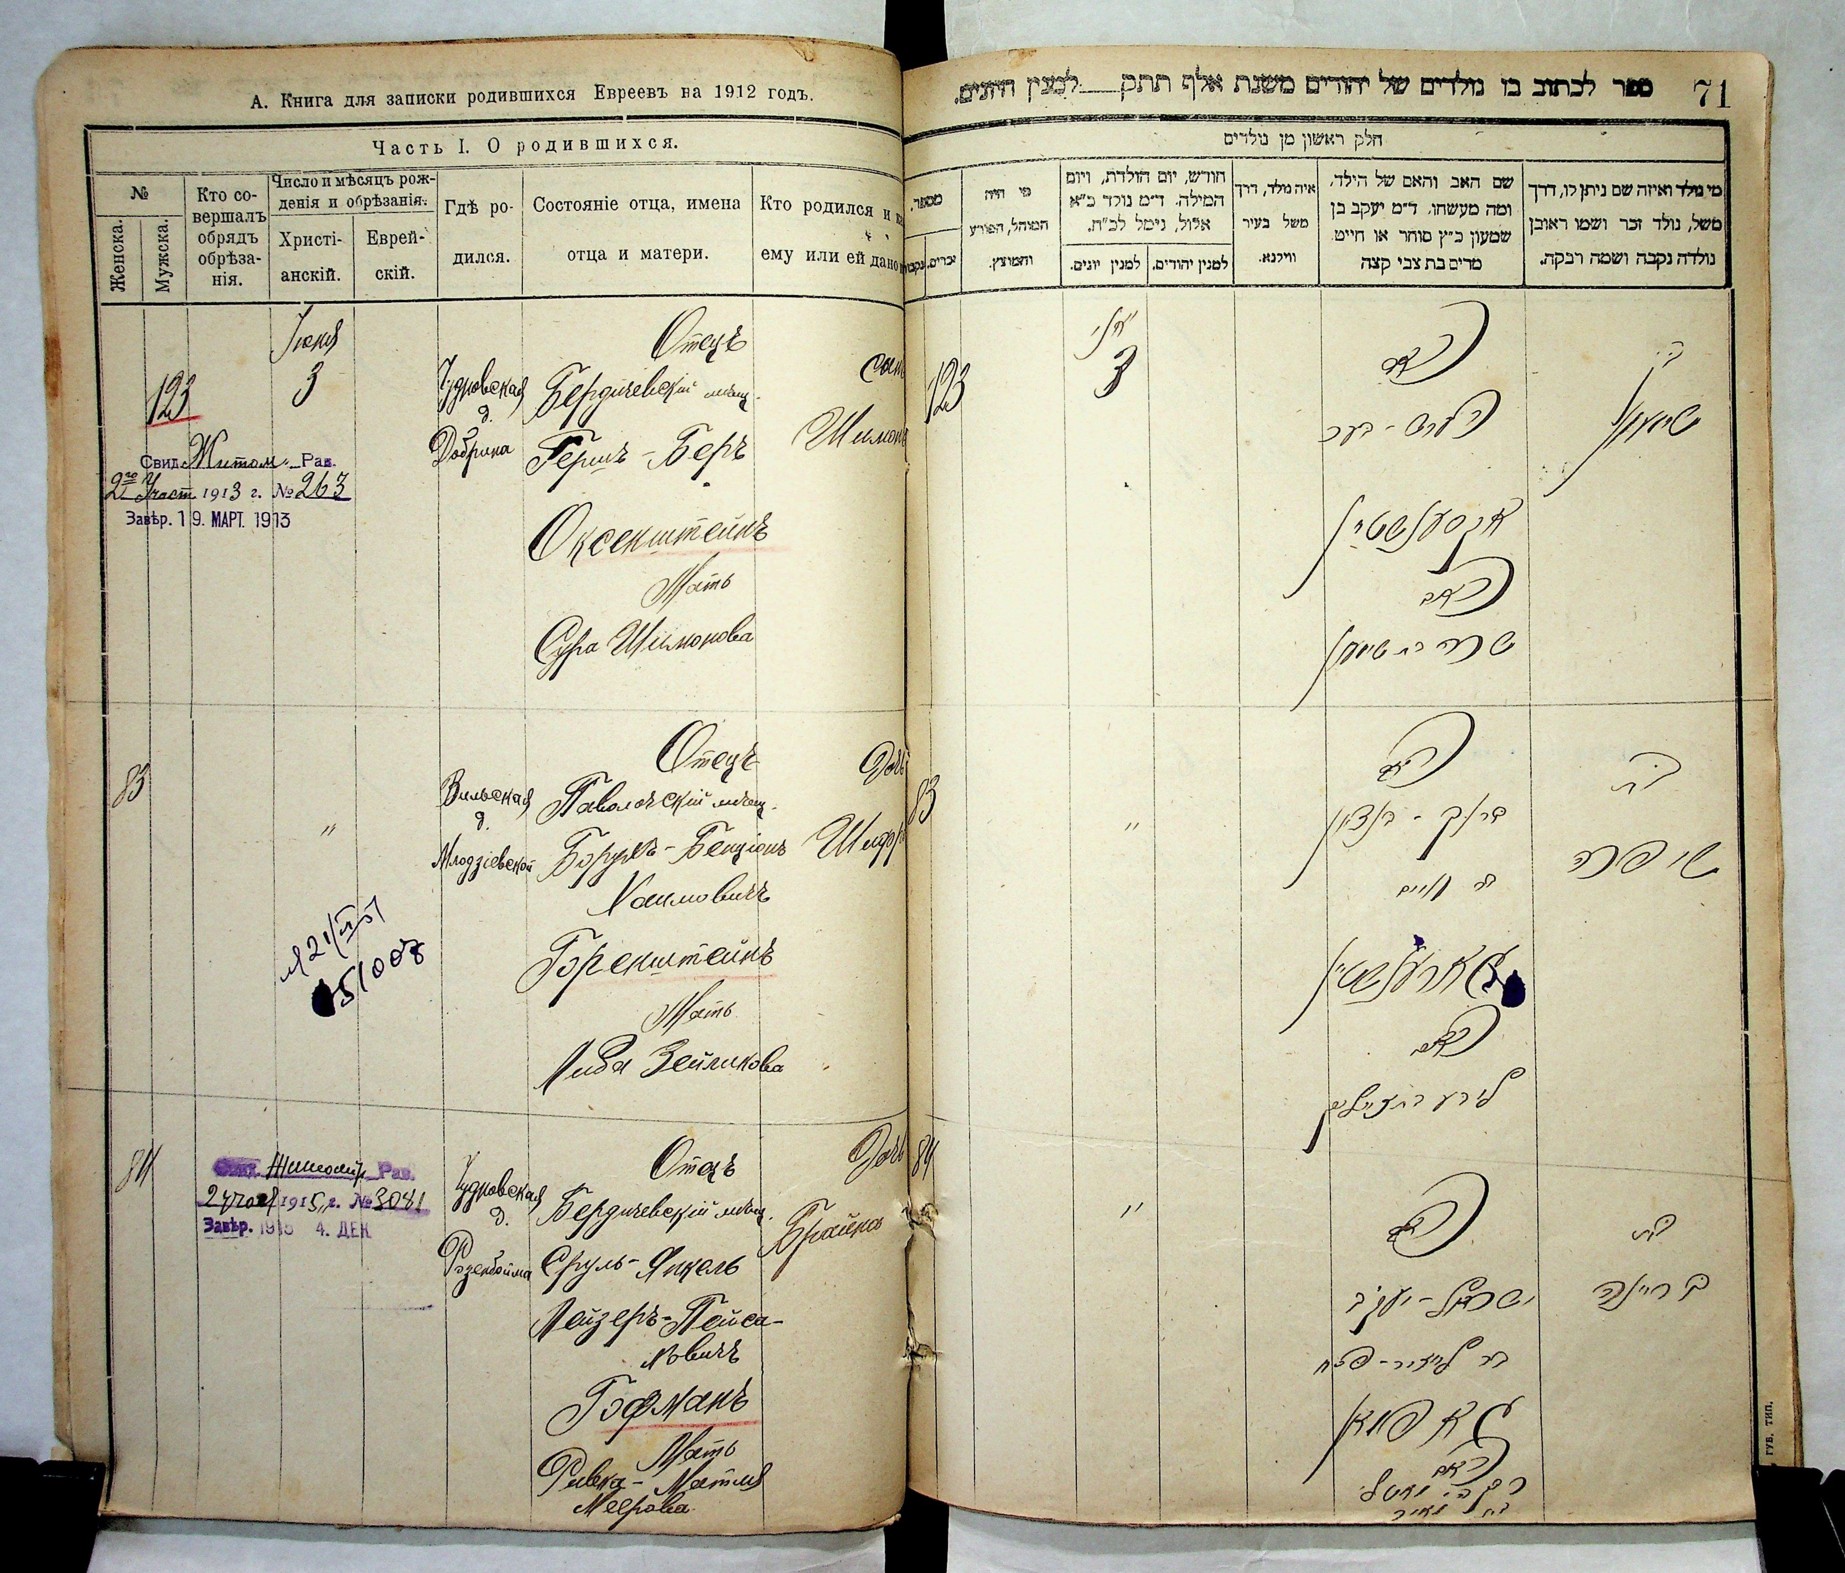 А. Книга для записки родившихся Евреевъ на 1912 годъ.
Часть I. О родившихся.
№
Женска.
Мужска.
Кто со-
вершалъ
обрядъ
обрѣза-
нія.
Число и мѣсяцъ рож-
денія и обрѣзанія.
Христі-
анскій.
Еврей-
скій.
Гдѣ ро-
дился.
Состояніе отца, имена
отца и матери.
Кто родился и
ему или ей дано
123
Іюня
3
Чудновская
д.
Добрина
Отецъ
Бердичевскій мѣщ.
Гершъ-Беръ
Оксенштейнъ
Мать
Сура Шимонова
Сынъ
Шимонъ
Свид. Житом. Рав.
2го Участ 1913 г. № 263
Завѣр. 19. МАРТ. 1913
83
"
Вильская
д.
Млодзіевской
Отецъ
Паволочскій мѣщ.
Борухъ-Бенціонъ
Хаимовичъ
Горенштейнъ
Мать
Люба Зейликова
Дочь
Шифра
51008
84
Свид. Житомір. Рав.
1915 г. № 3081
Завѣр. 1915 4. ДЕК.
Чудновская
д.
Розенбойма
Отецъ
Бердичевскій мѣщ.
Сруль-Янкель
Лейзеръ-Пейса-
ховичъ
Гофманъ
Мать
Ривка-Матля
Меерова
Дочь
Брайна
ספר לכתוב בו נולדים של יהודים משנת אלף תתק למנין היונים.
71
חלק ראשון מן נולדים
מי נולד ואיזה שם ניתן לו, דרך
משל, נולד זכר ושמו ראובן
נולדה נקבה ושמה רבקה.
שם האב והאם של הילד,
ומה מעשהו. ד״מ יעקב בן
שמעון כ״ץ סוחר או חייט
מרים בת צבי קצה
איה נולד, דרך
משל בעיר
ווילנא.
חודש, יום הולדת, ויום
המילה. ד״מ נולד כ״א
אלול, נימל לכ״ח.
למנין יהודים.
למנין יונים.
מי היה
המוהל, הפורע
והמוצץ.
מספר.
זכרים.
123
יוני
3
האב
הערש-בער
אקסענשטיין
האם
שרה בת שימען
בן
שימען
83
"
האב
ברוך-בנציון
בר חיים
גארענשטיין
האם
ליבע בת זייליק
בת
שיפרה
84
"
האב
ישראל-יעקב
בר לייזער-פסח
גאפמאן
האם
בת מאיר
בת
בריינה
ГУБ. ТИП.